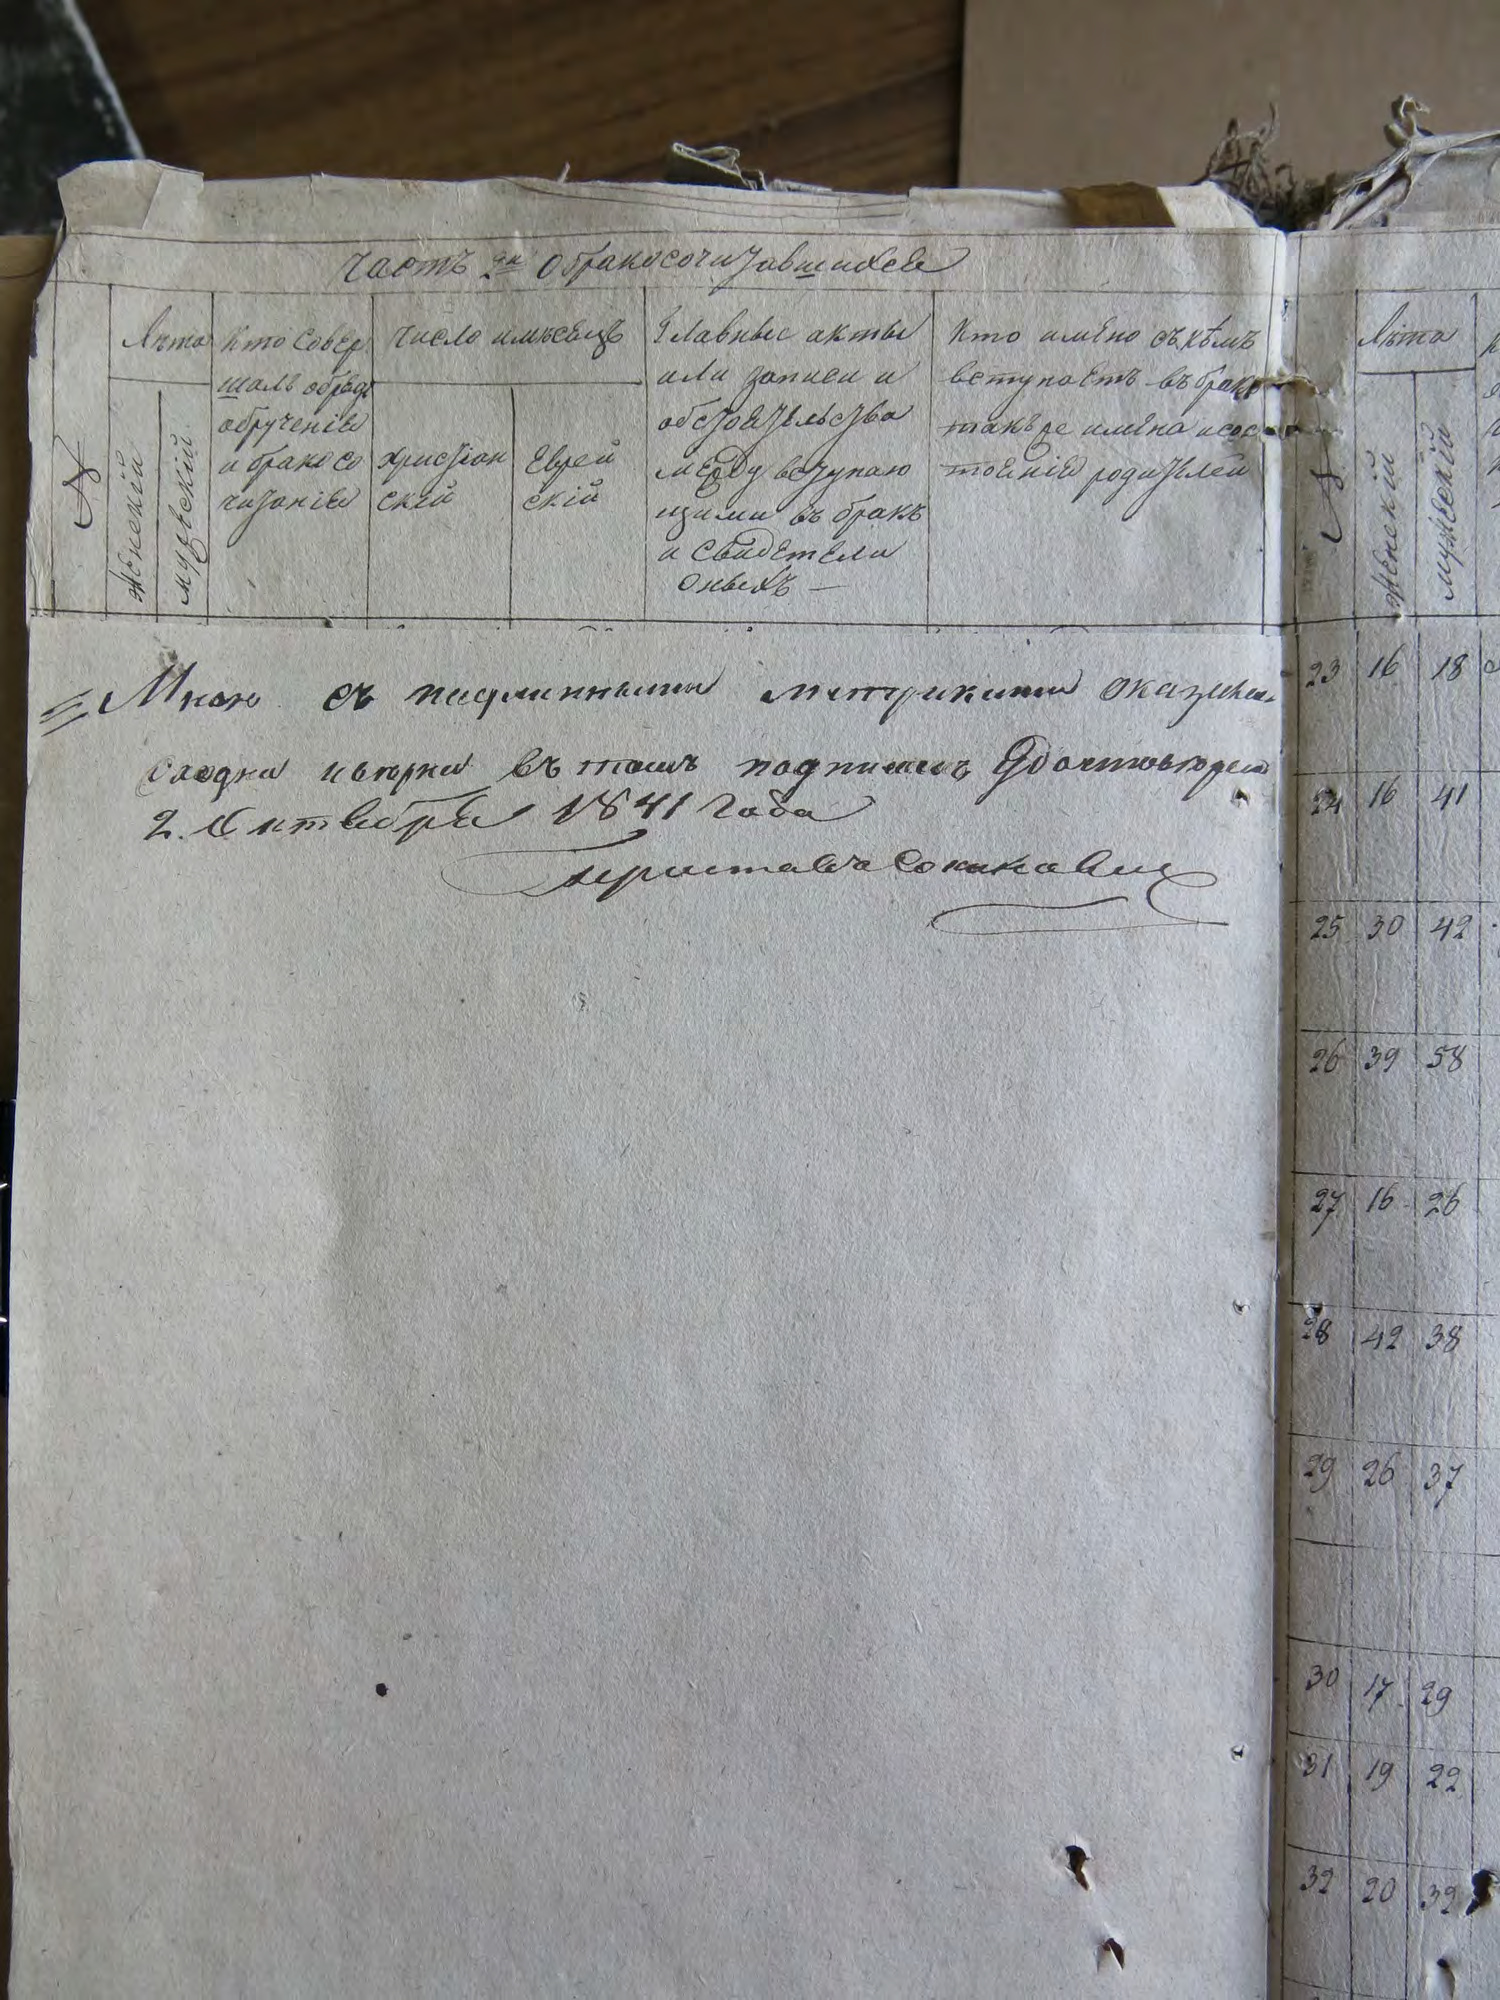 Часть 2я о бракосочитавшихся
№
Лѣта
Женскій
мужескій
Кто совер
шалъ обрядъ
обрученія
и бракосо
читанія
Число и мѣсяцъ
Христіан
скій
Еврей
скій
Главные акты
или записи и
обстоятельства
между вступаю
щими въ бракъ
и свидетели
оныхъ —
Кто имѣно съ кѣмъ
вступаетъ въ бракъ
также имѣна и сос
тояніе родителей
Мною съ подлинными метриками оказалась
сходна и верна въ томъ подписомъ Удостоверяю
2. Октября 1841 Года
№
Лѣта
Женскій
мужескій
23 16 18
24 16 41
25 30 42
26 39 58
27 16 26
28 42 38
29 26 37
30 17 29
31 19 22
32 20 32